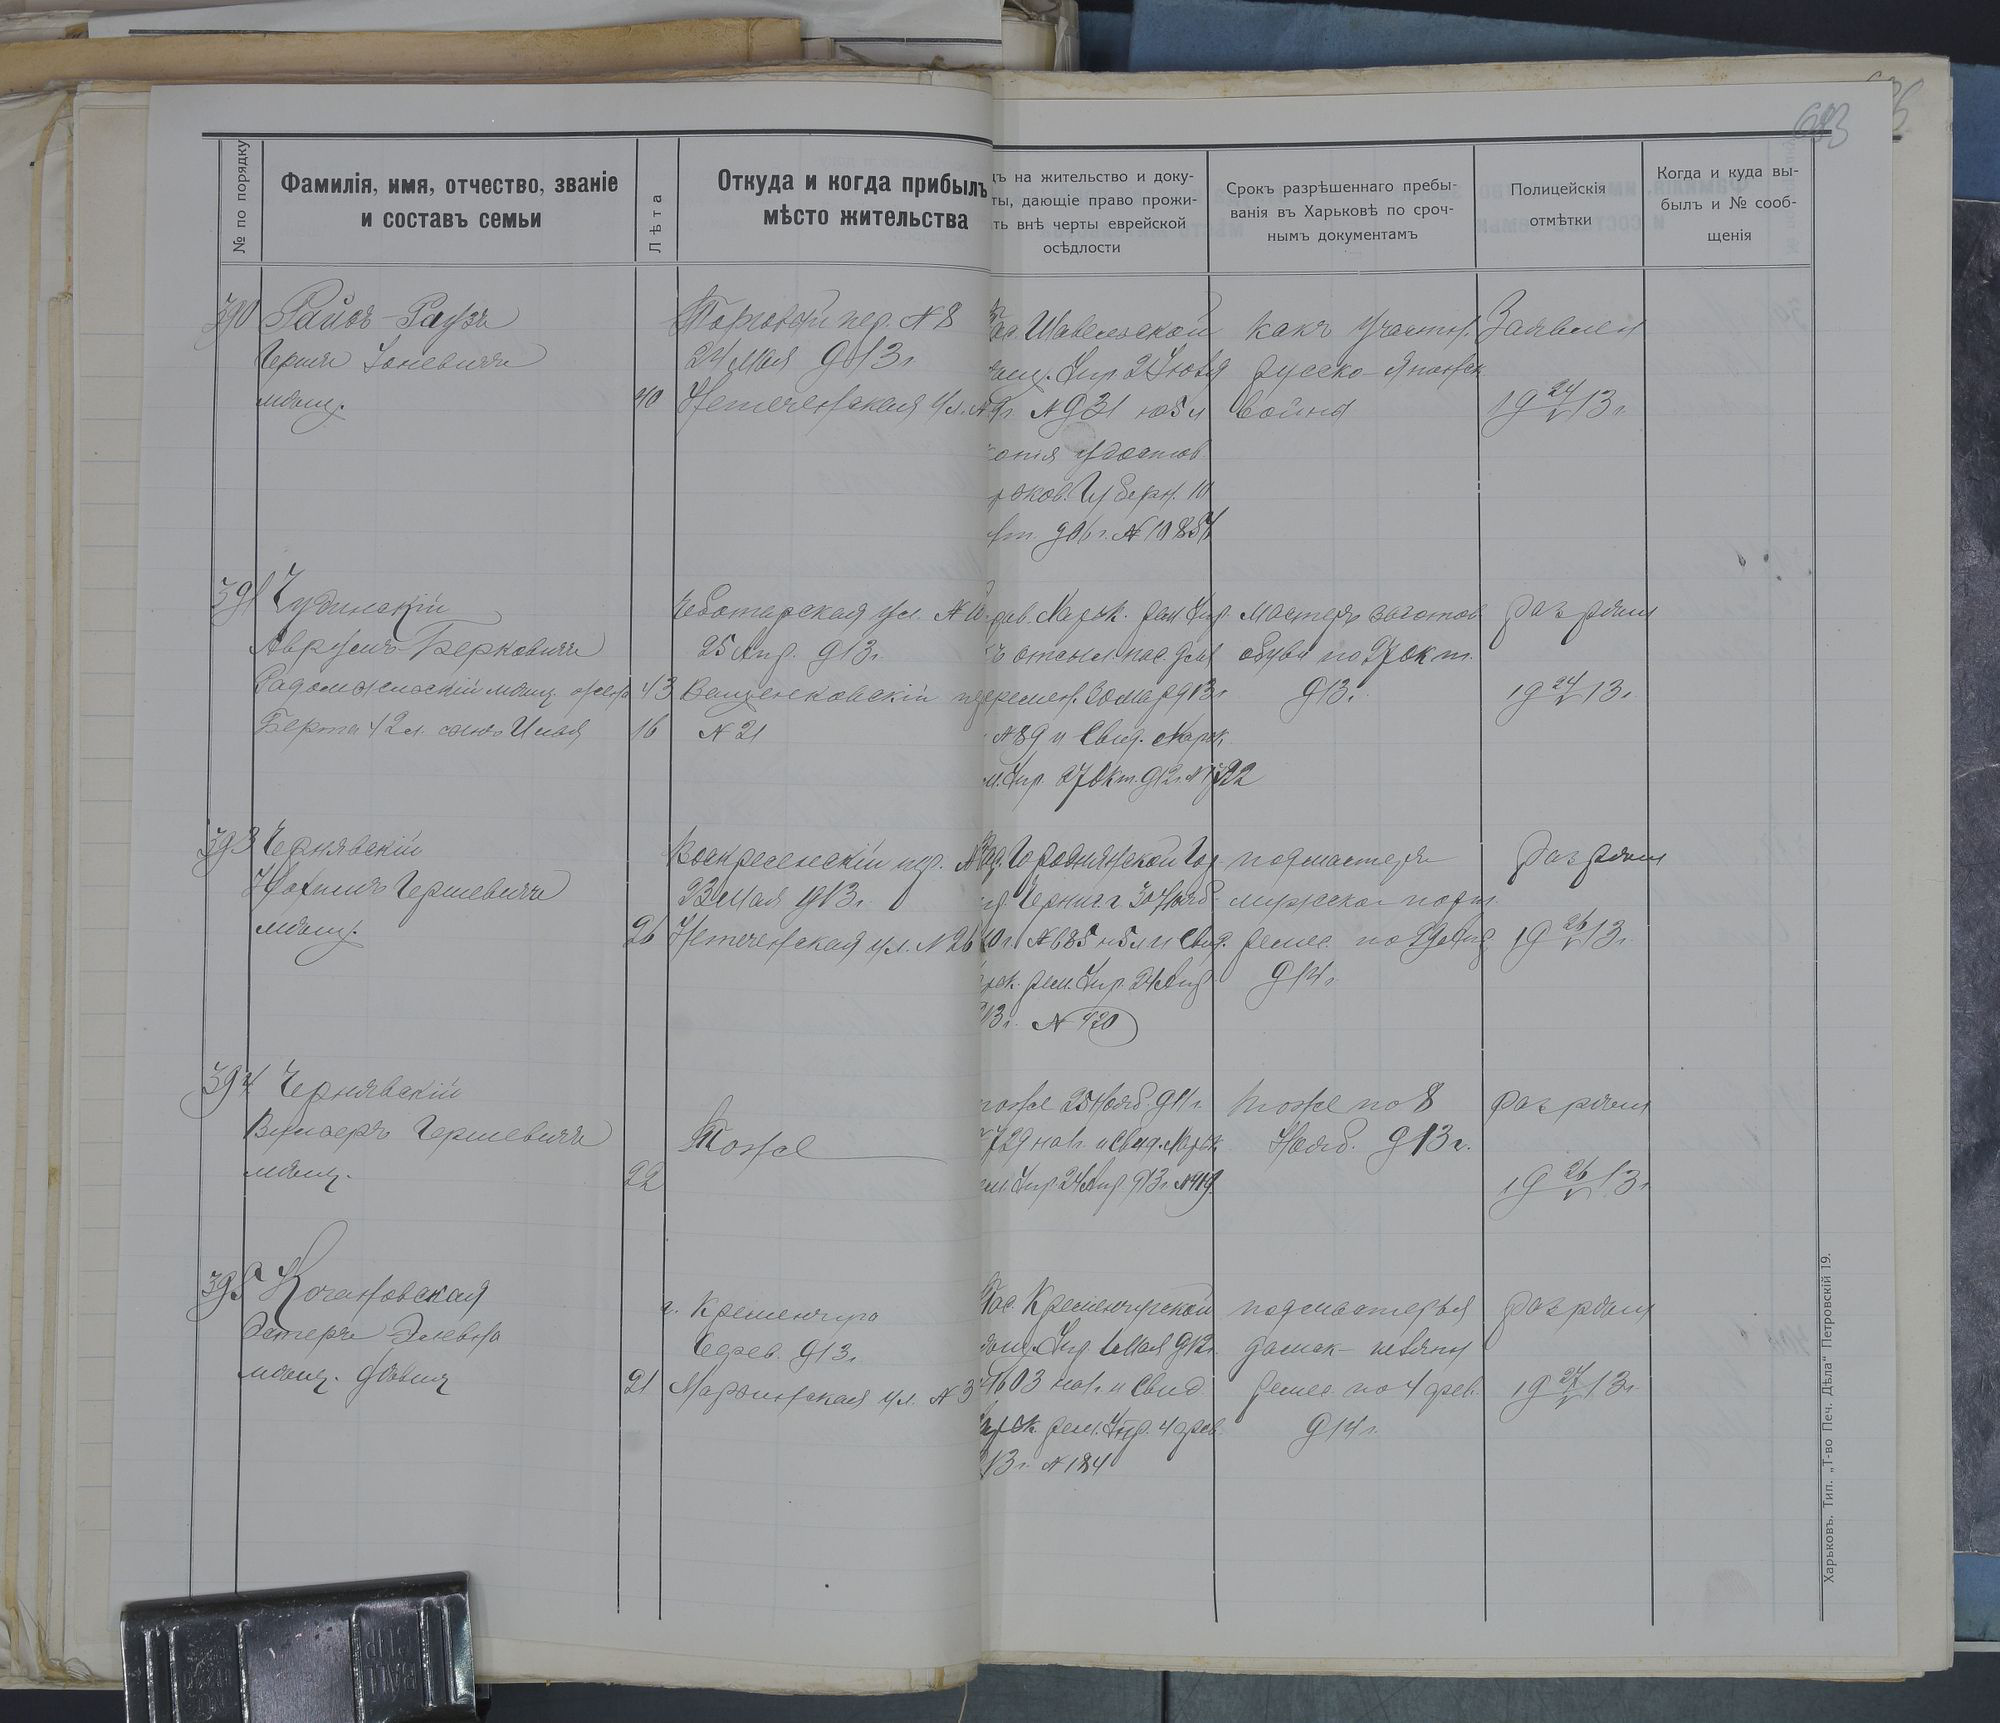 633
№ по порядку
Фамилія, имя, отчество, званіе
и составъ семьи
Лѣта
Откуда и когда прибылъ
мѣсто жительства
дъ на жительство и доку-
ты, дающіе право прожи-
ть внѣ черты еврейской
осѣдлости
Срокъ разрѣшеннаго пребы-
ванія въ Харьковѣ по сроч-
нымъ документамъ
Полицейскія
отмѣтки
Когда и куда вы-
былъ и № сооб-
щенія
390
Райсъ-Раузъ
мѣщ.
40
Торговый пер. № 8
24 Мая 913 г.
Нетеченская ул. №
Пас. Шавельской
мѣщ. Упр. 2 Іюля
9 г. № 931 на 5 л
копія удостов.
рьков. Губерн. 10
906 г. № 10854
какъ участн.
русско-японск
войны
Заявлен
19 24/V 13 г.
391
Чудинскій
Аврумъ-Берковичъ
Радомысльскій мѣщ. жена
Берта 42 л. сынъ Илья
43
16
Чеботарская ул. № 10
25 Апр. 913 г.
Ващенковскій пер
№ 21
Харьк. рем. Упр.
ремен. 30 мар 913 г.
№ 89 и Свид. Харьк
м. Упр. 27 Окт. 912 г. №
мастеръ заготов
обуви по 27 Окт.
913 г.
разрѣш
19 24/V 13 г.
393
Чернявскій
Гершевичъ
мѣщ.
26
Воскресенскій пер. №
23 Мая 913 г.
Нетеченская ул. № 26
Пас. Городнянской Гор
Черниг. г 30 Нояб
10 г. № 685 на 5 л и Свид.
рьк. рем. Упр. 24 Апр
913 г. № 420
подмастерье
мужское порт.
ремес. по
914 г.
разрѣш
19 26/V 13 г.
394
Чернявскій
Гершевичъ
мѣщ.
22
Тоже
тоже 25 Нояб. 911 г.
729 на 1 г. и Свид. Харьк
ем. Упр 24 Апр 913 г. № 419
тоже по 8
Нояб. 913 г.
разрѣш
19 26/V 13 г.
395
Кочановская
Эстеръ Элевна
мѣщ. дѣвиц
21
г. Кременчуга
Февр. 913 г.
Мордвиновская ул. № 3
Пас. Кременчугской
мѣщ. Упр 1 Мая 912 г.
№ 1603 на 1 г. и Свид
Харьк. рем. Упр. 4 фев.
913 г. № 184
подмастерья
дамск-
ремес. по 4 фев.
914 г.
разрѣш
19 27/V 13 г.
Харьковъ. Тип. „Т-во Печ. Дѣла“ Петровскій 19.